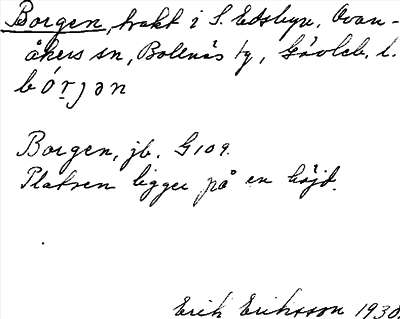 Borgen, trakt i S. Edsbyn, Ovan-
åkers sn, Bollnäs tg, Gävleb. l.
bórjən
Borgen, jb. G 109.
Platsen ligger på en höjd.
Erik Eriksson 1930.